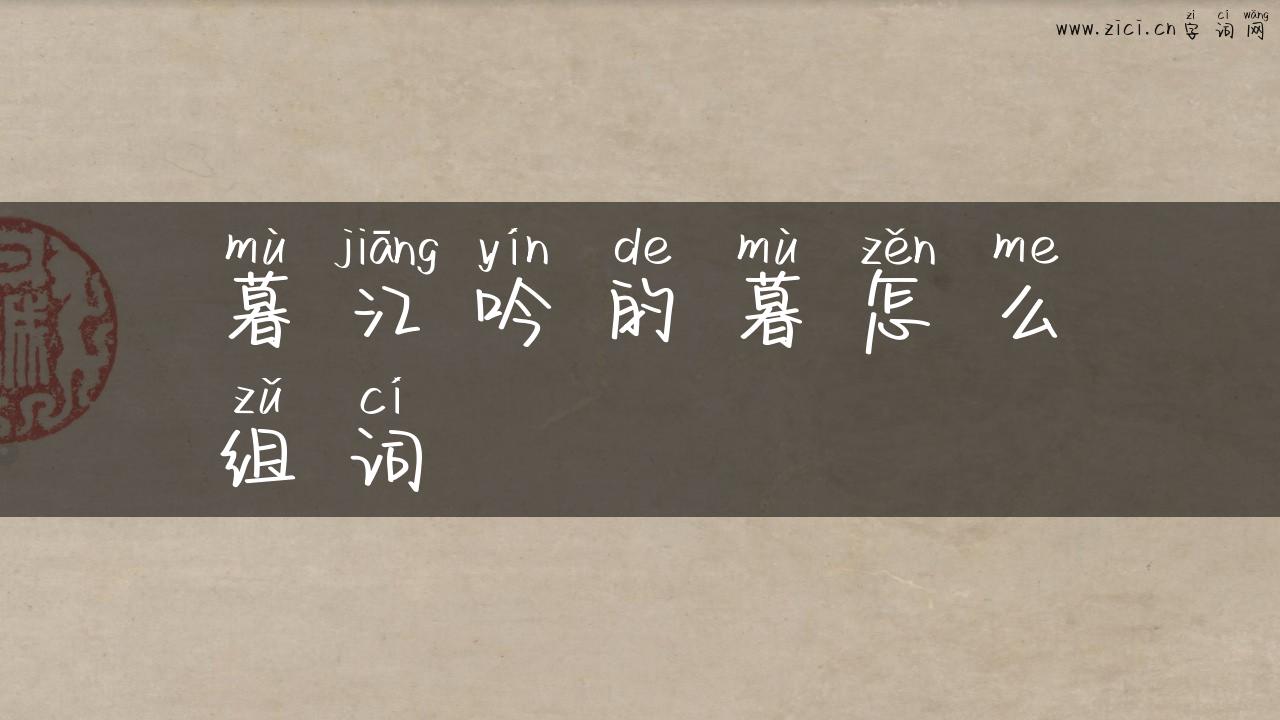 zì cí wǎng
www.zici.cn 字词网
mù jiāng yín de mù zěn me
暮江吟的暮怎么
zǔ cí
组词